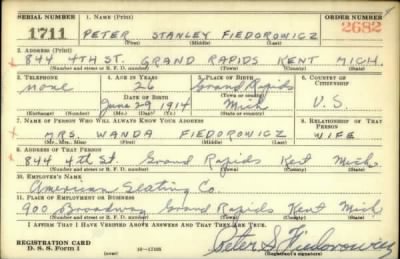 SERIAL NUMBER 1. NAME (Print) ORDER NUMBER
1711 PETER STANLEY FIEDOROWICZ 2682
(First) (Middle) (Last)
2. ADDRESS (Print)
844 4TH ST. GRAND RAPIDS KENT MICH.
(Number and street or R. F. D. number) (Town) (County) (State)
3. TELEPHONE 4. AGE IN YEARS 5. PLACE OF BIRTH 6. COUNTRY OF CITIZENSHIP
none 26 Grand Rapids
DATE OF BIRTH (Town or county)
June 29 1914 Mich U.S.
(Exchange) (Number) (Mo.) (Day) (Yr.) (State or country)
7. NAME OF PERSON WHO WILL ALWAYS KNOW YOUR ADDRESS 8. RELATIONSHIP OF THAT PERSON
MRS. WANDA FIEDOROWICZ WIFE
(Mr., Mrs., Miss) (First) (Middle) (Last)
9. ADDRESS OF THAT PERSON
844 4th St. Grand Rapids Kent Mich.
(Number and street or R. F. D. number) (Town) (County) (State)
10. EMPLOYER'S NAME
American Seating Co.
11. PLACE OF EMPLOYMENT OR BUSINESS
900 Broadway Grand Rapids Kent Mich
(Number and street or R. F. D. number) (Town) (County) (State)
I AFFIRM THAT I HAVE VERIFIED ABOVE ANSWERS AND THAT THEY ARE TRUE.
Peter S. Fiedorowicz
REGISTRATION CARD
D. S. S. Form 1 (over) 16-17105 (Registrant's signature)